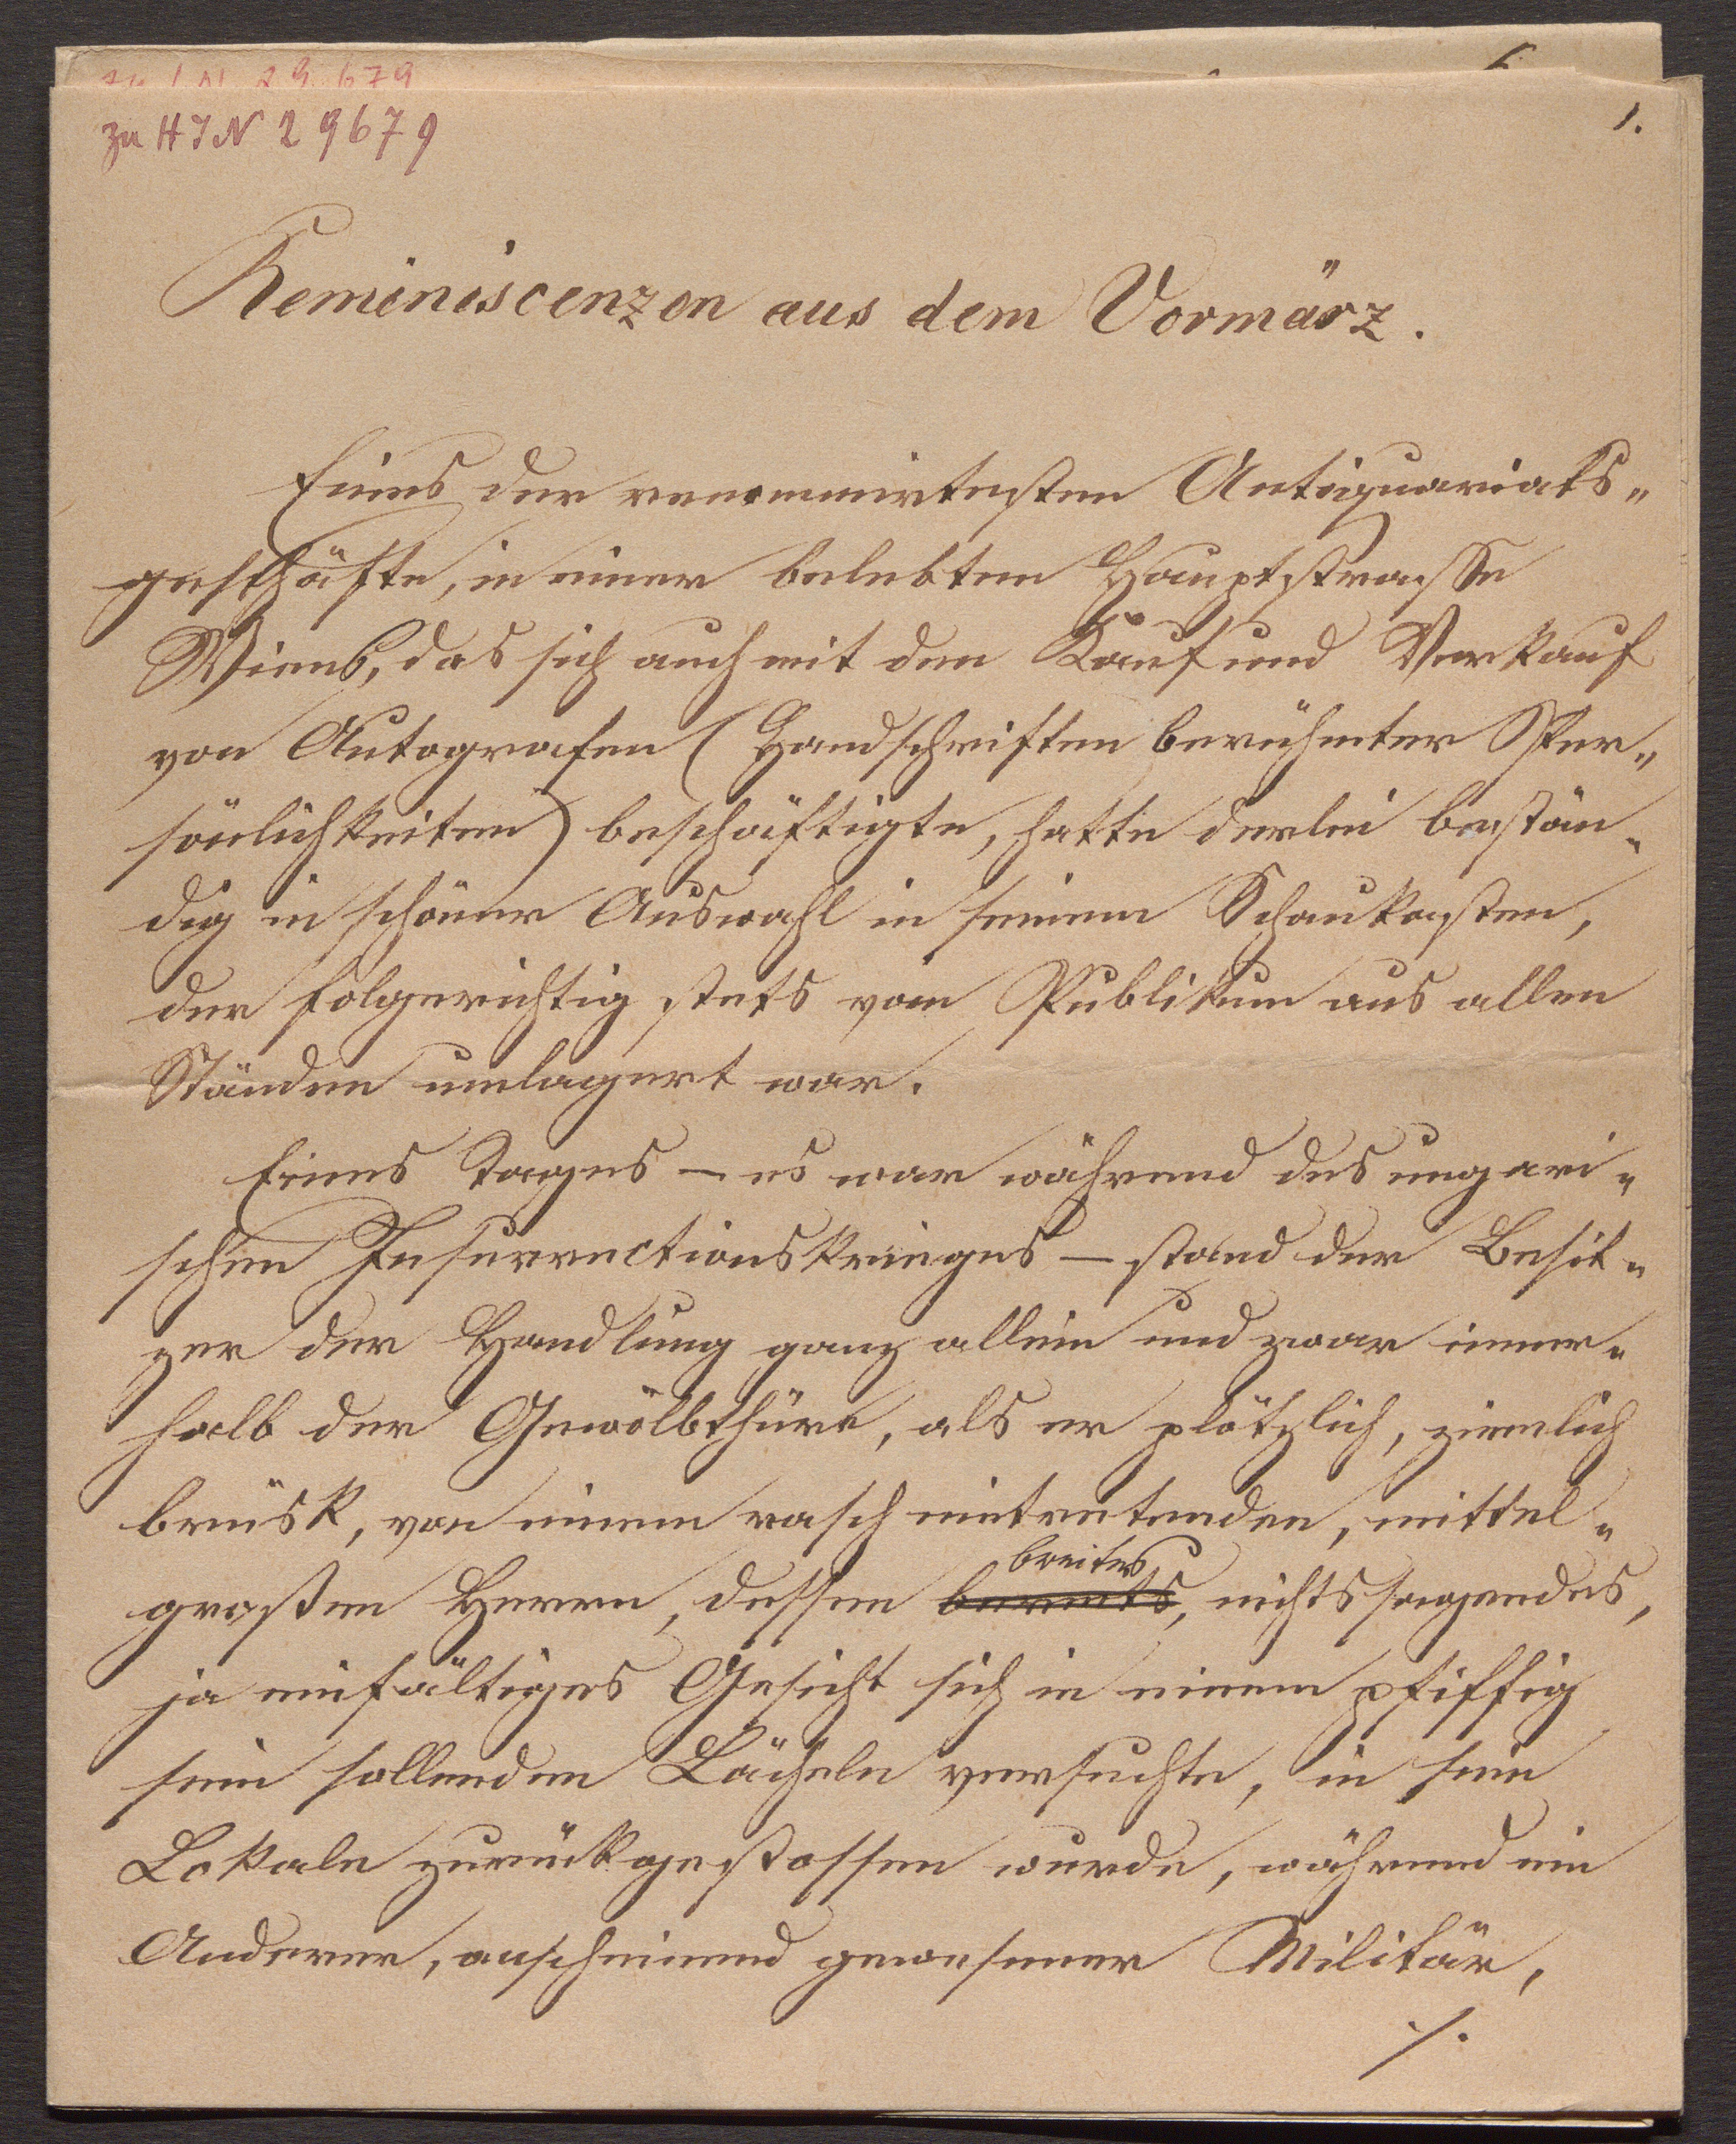 zu HJN 29679
1.
Reminiscenzen aus dem Vormärz.
Eines der renommirtesten Antiquariats„
geschäfte, in einer belebten Hauptstrasse
Wiens, das sich auch mit den Kauf und Verkauf
von Autografen (Handschriften berühmter Per„
sönlichkeiten) beschäftigte, hatte derlei bestän„
dig in schöner Auswahl in seinem Schaukasten,
der folgerichtig stets vom Publikum aus allen
Ständen umlagert war.
Eines Tages – es war während des ungari„
schen Insurrectionskrieges – stand der Besit„
zer der Handlung ganz allein und zwar inner„
halb der Gewölbthüre, als er plötzlich, ziemlich
brüsk, von einem rasch eintretenden, mittel„
breites
großen Herrn, dessen bereits, nichtssagendes,
ja einfältiges Gesicht sich in einem pfiffig
sein sollenden Lächeln versuchte, in sein
Lokale zurückgestossen wurde, während ein
Anderer, anscheinend gewesener Militär,
./.